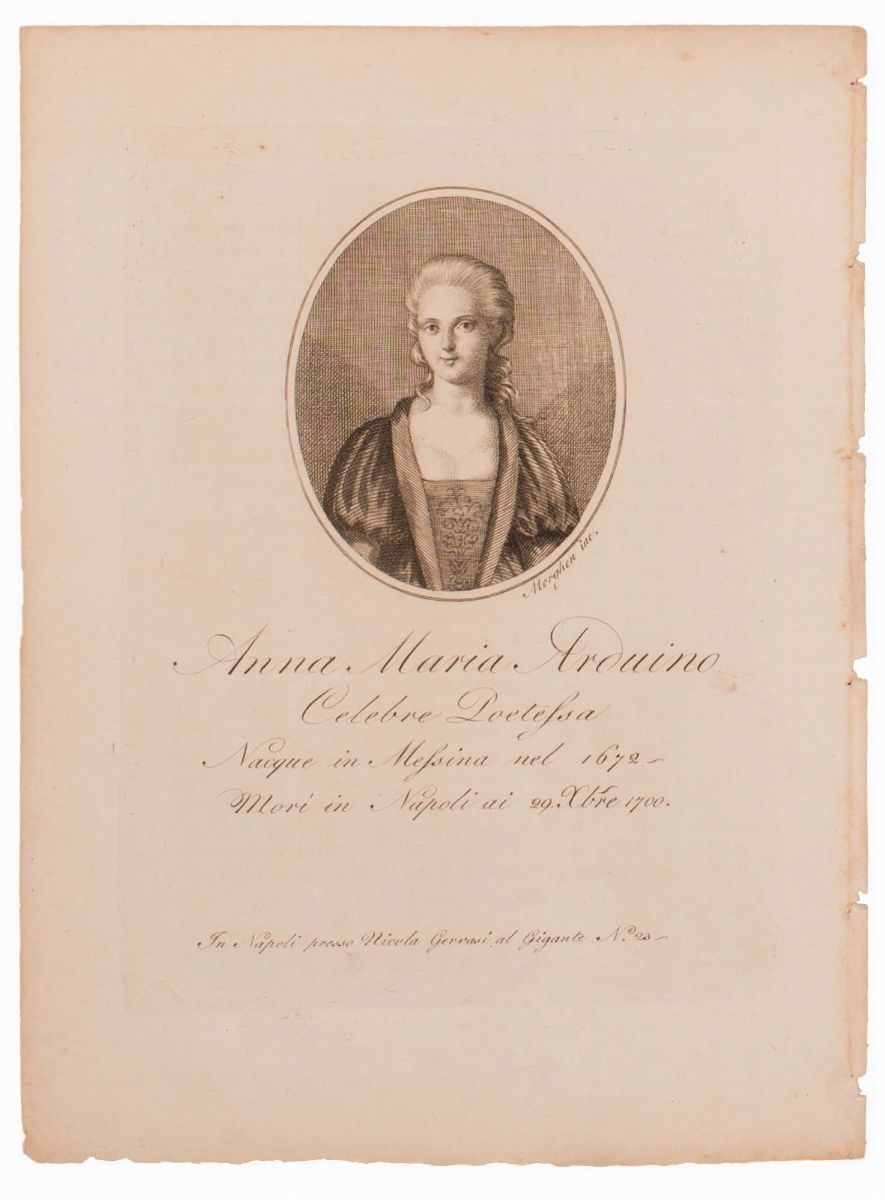 Morghen inc.
Anna Maria Arduino
Celebre Poeteſsa
Nacque in Meſsina nel 1672
Morì in Napoli ai 29. Xbr̃e 1700.
In Napoli presso Nicola Gervasi al Gigante N.º 23